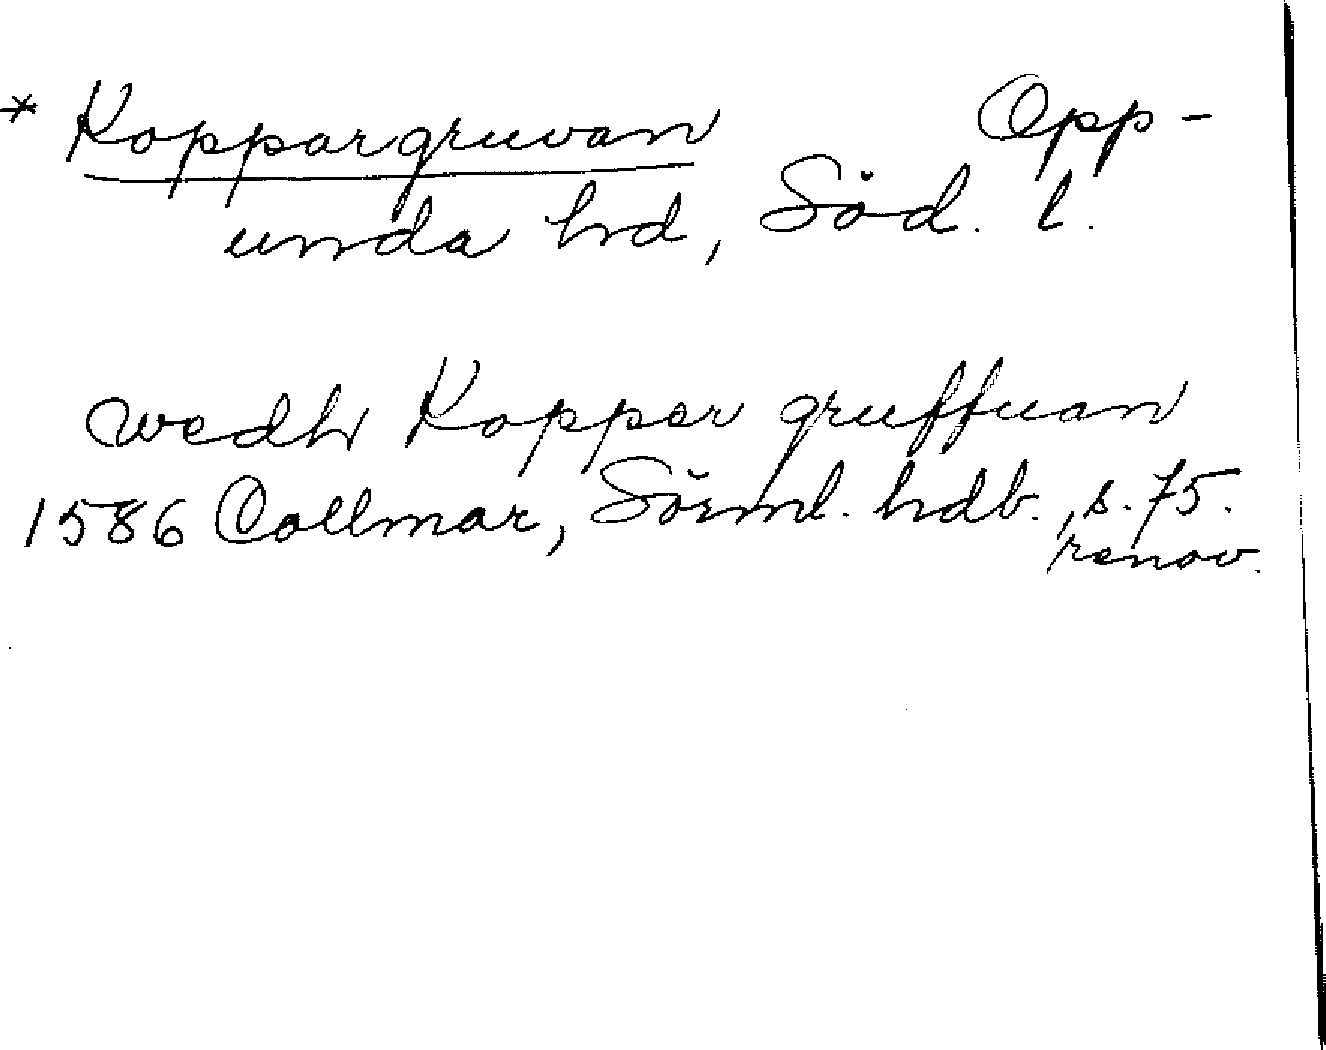 * Koppargruvan Opp-
unda hd, Söd. l.
wedh Kopper gruffuan
1586 Collmar, Sörml. hdb., s. 75.
renov.